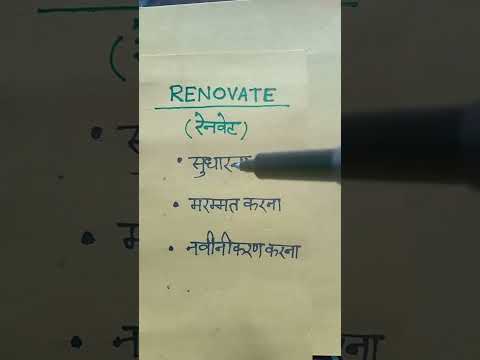 RENOVATE
(रेनवेट)
• सुधारना
• मरम्मत करना
• नवीनीकरण करना